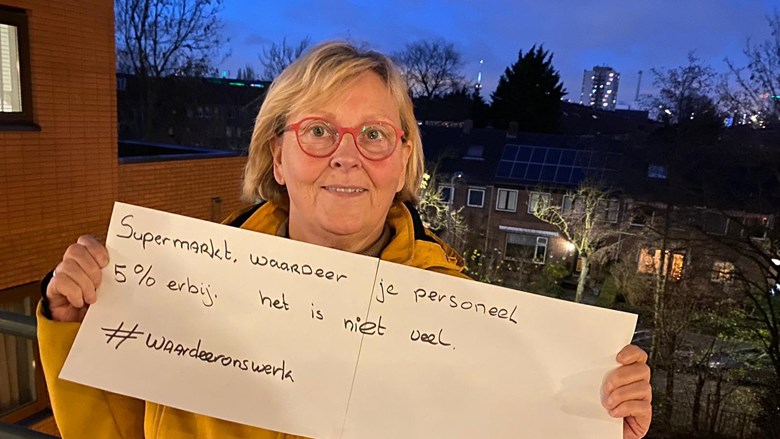 Supermarkt, waardeer je personeel
5% erbij. het is niet veel.
#waardeeronswerk